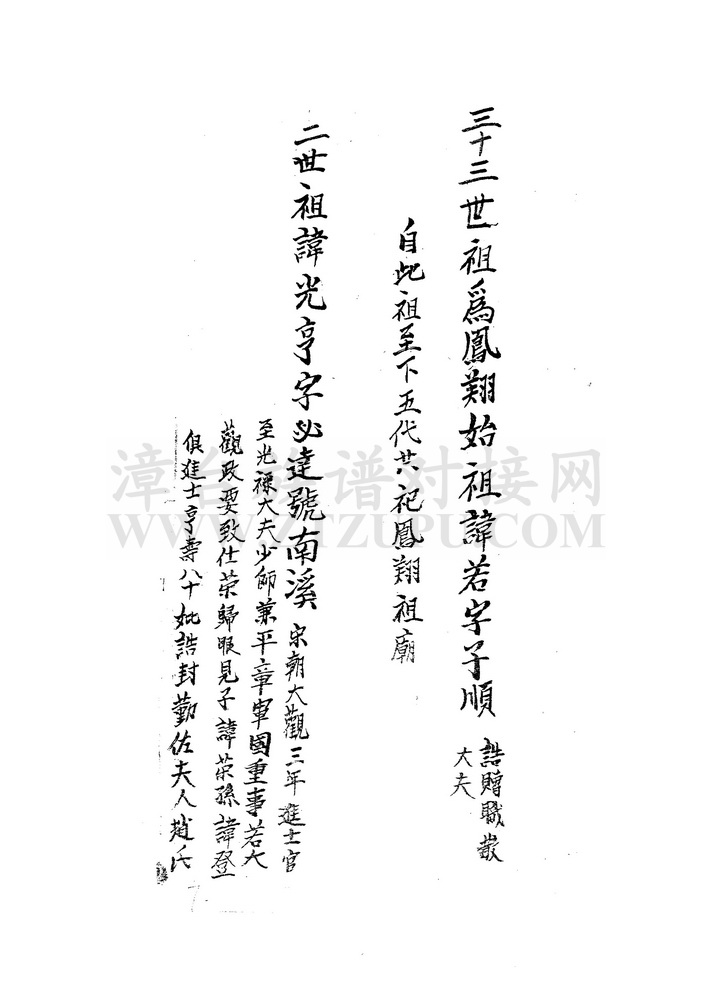 三十三世祖為鳳翔始祖諱若字子順 誥贈職散
大夫
自此祖至下五代共祀鳳翔祖廟
二世祖諱光亨字必達號南溪 宋朝大觀三年進士官
至光祿大夫少師兼平章軍國重事若大
觀政要致仕荣歸眼見子諱荣孫諱登
俱進士亨壽八十妣誥封勤佐夫人趙氏
漳台族谱对接网
WWW.ZTZUPU.COM